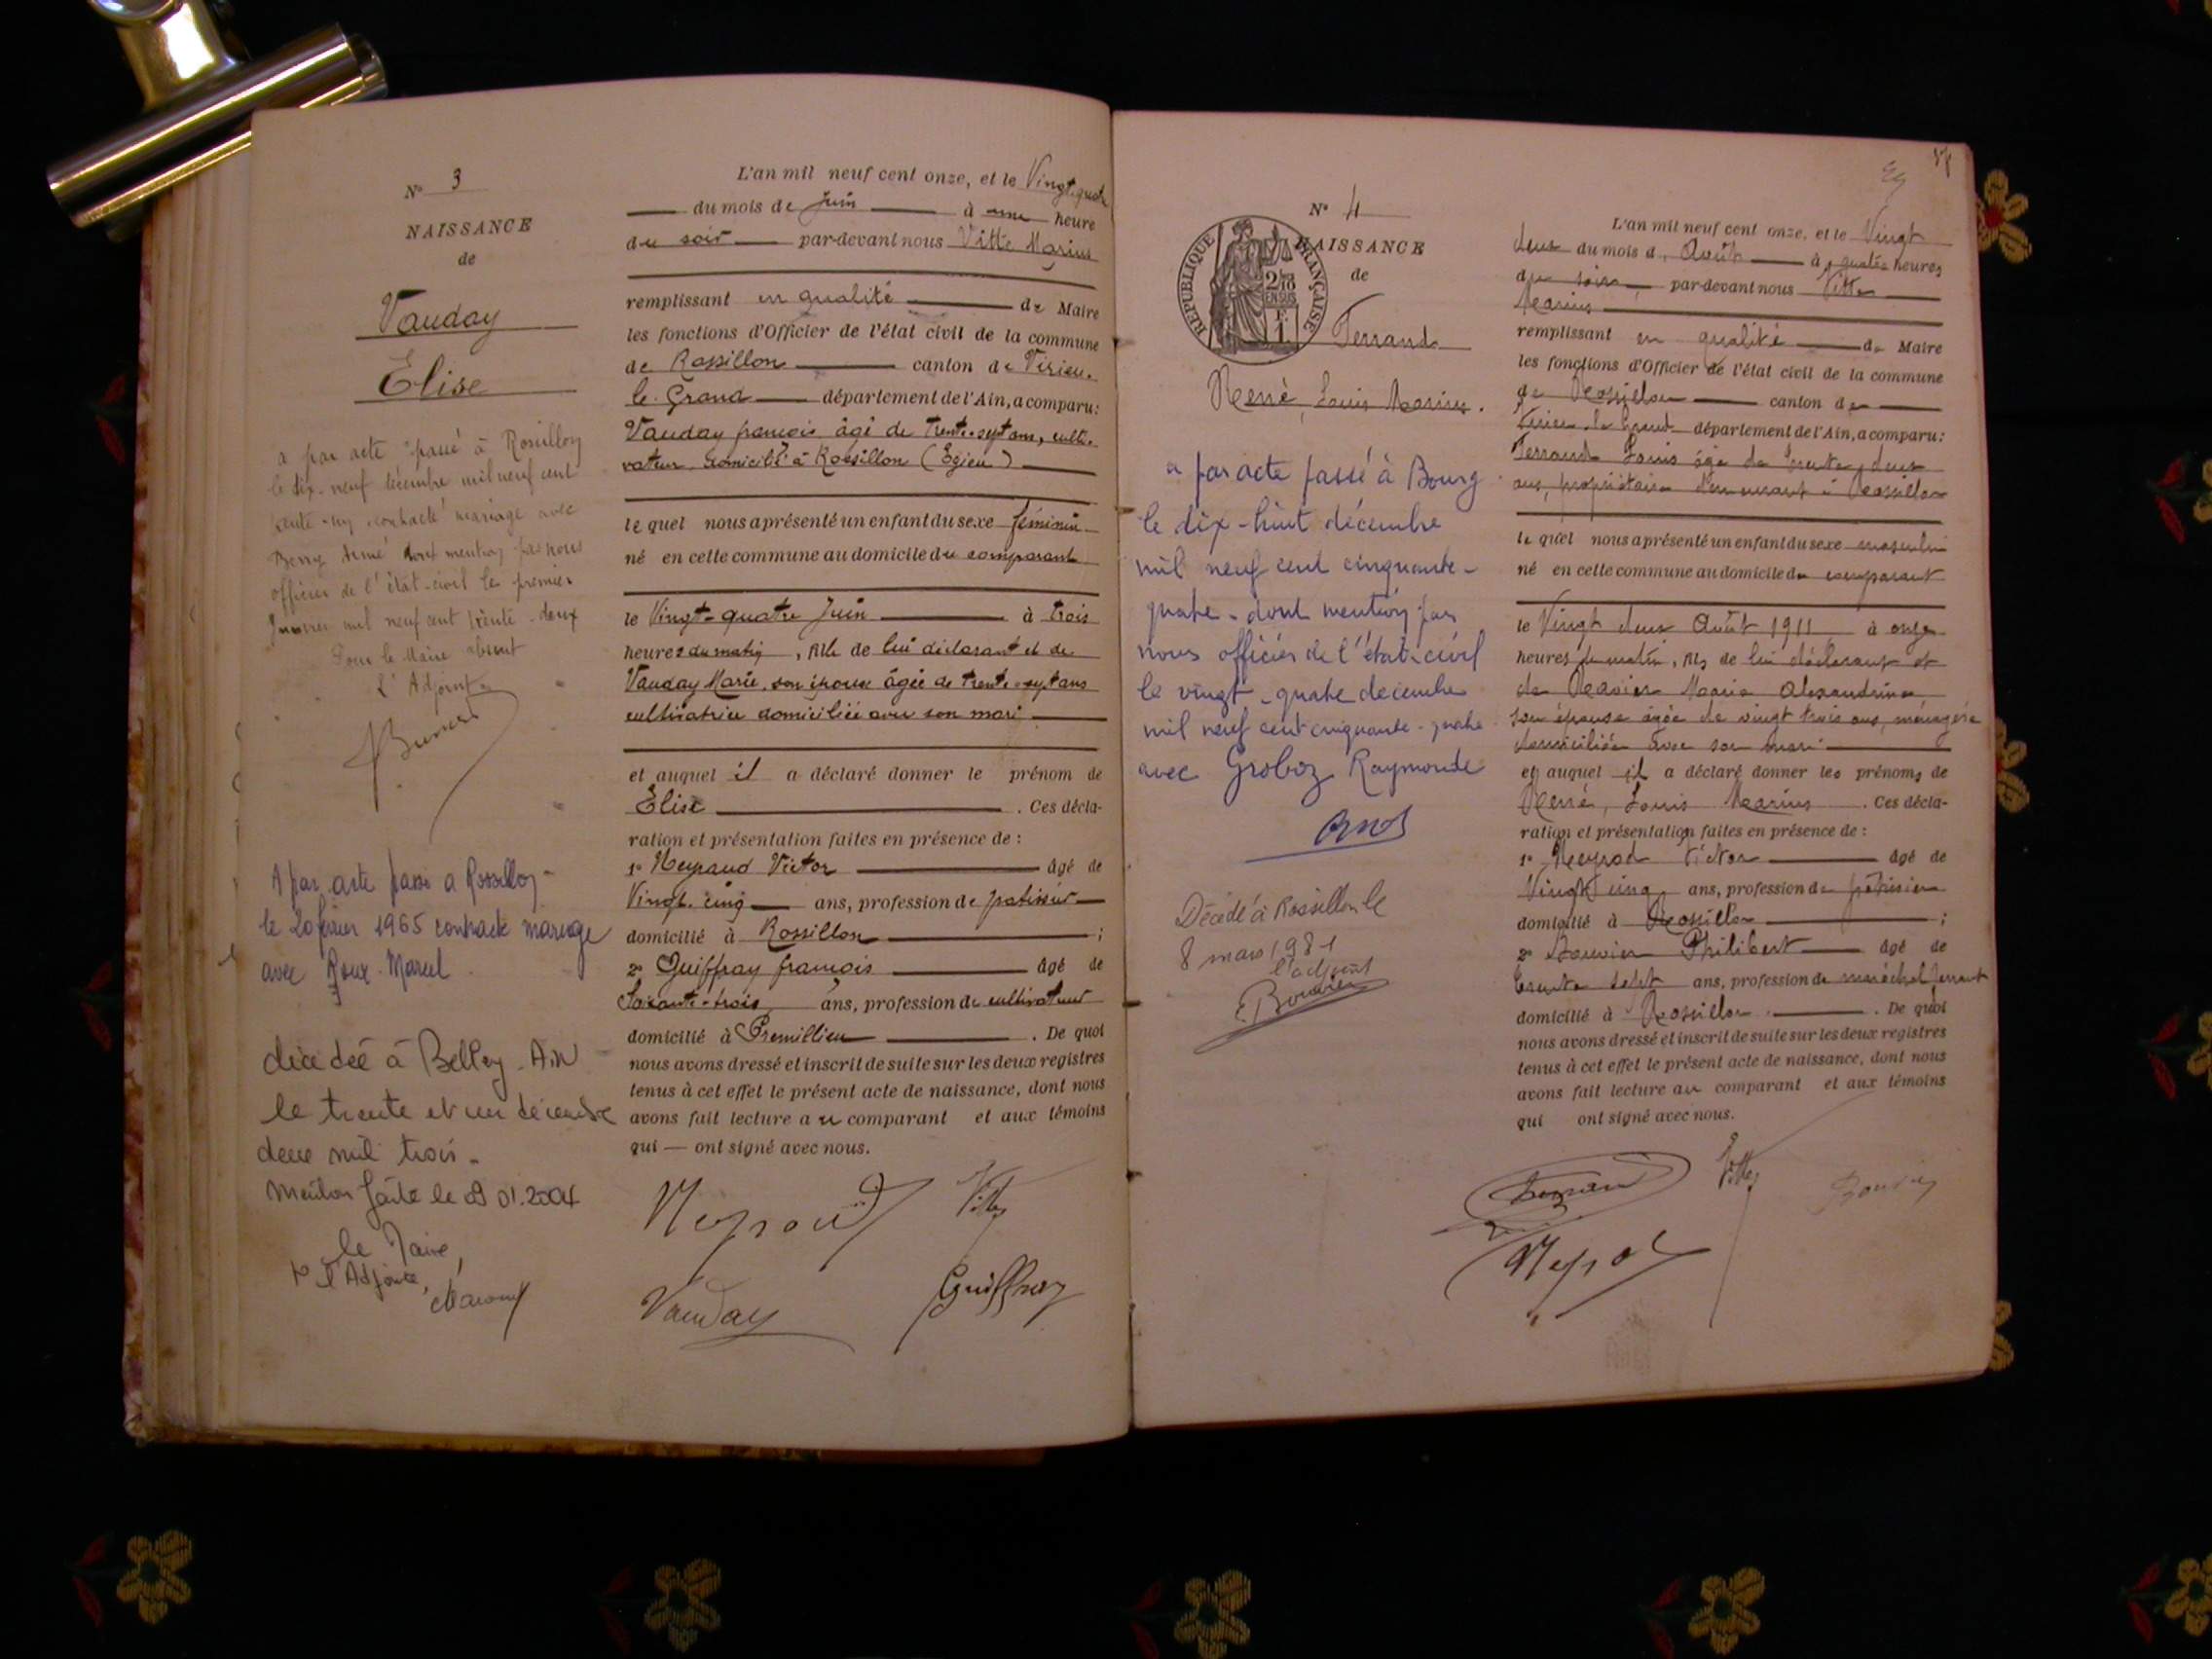 N° 3
NAISSANCE
de
Vauday
Elise
a par acte passé à Rossillon
le dix-neuf décembre mil neuf cent
trente-un, contracté mariage avec
Aimé dont mention par nous
officier de l'état-civil le premier
Janvier mil neuf cent trente-deux
Pour le Maire absent
L'Adjoint
A par acte passé a Rossillon
le 20 février 1965 contracté mariage
avec Roux Marcel
décédée à Belley-Ain
le trente et un décembre
deux mil trois-
Mention faite le 09 01.2004
le Maire,
l'Adjointe,
L'an mil neuf cent onze, et le Vingt-quatre
du mois de Juin à une heure
du soir par-devant nous Vitte Marius
remplissant en qualité de Maire
les fonctions d'Officier de l'état civil de la commune
de Rossillon canton de Virieu-
le-Grand département de l'Ain, a comparu:
Vauday françois âgé de Trente-sept ans, culti-
vateur domicilié à Rossillon (Egieu)
le quel nous a présenté un enfant du sexe féminin
né en cette commune au domicile du comparant
le Vingt-quatre Juin à trois
heures du matin, fille de lui déclarant et de
Vauday Marie, son épouse âgée de trente-sept ans
cultivatrice domiciliée avec son mari
et auquel il a déclaré donner le prénom de
Elise . Ces décla-
ration et présentation faites en présence de :
1° Neyraud Victor âgé de
Vingt-cinq ans, profession de patissier
domicilié à Rossillon ;
2° Guiffray françois âgé de
Soixante-trois ans, profession de cultivateur
domicilié à Premillieu . De quoi
nous avons dressé et inscrit de suite sur les deux registres
tenus à cet effet le présent acte de naissance, dont nous
avons fait lecture au comparant et aux témoins
qui — ont signé avec nous.
Vitte
Vauday
Guiffray
N° 4
NAISSANCE
de
REPUBLIQUE FRANÇAISE
2/10
EN SUS
F.
1
Ferrand
René, Louis Marius.
a par acte passé à Bourg
le dix-huit décembre
mil neuf cent cinquante-
quatre - dont mention par
nous officier de l'état-civil
le vingt-quatre decembre
mil neuf cent cinquante-quatre
avec Groboz Raymonde
Décédé à Rossillon le
8 mars 1981
l'adjoint
E Bouvier
L'an mil neuf cent onze, et le Vingt
deux du mois d'Août à quatre heures
du soir, par-devant nous Vitte
Marius
remplissant en qualité de Maire
les fonctions d'Officier de l'état civil de la commune
de Rossillon canton de
Virieu-le-Grand département de l'Ain, a comparu:
Ferrand Louis âgé de trente-deux
ans, propriétaire demeurant à Rossillon
le quel nous a présenté un enfant du sexe masculin
né en cette commune au domicile du comparant
le Vingt deux Août 1911 à onze
heures du matin, fils de lui déclarant et
de Marie Alexandrine
son épouse âgée de vingt trois ans, ménagère
domiciliée avec son mari
et auquel il a déclaré donner les prénoms de
René, Louis Marius . Ces décla-
ration et présentation faites en présence de :
1° Neyrod Victor âgé de
Vingt cinq ans, profession de pâtissier
domicilié à Rossillon ;
2° Bouvier Philibert âgé de
trente sept ans, profession de maréchal ferrant
domicilié à Rossillon . De quoi
nous avons dressé et inscrit de suite sur les deux registres
tenus à cet effet le présent acte de naissance, dont nous
avons fait lecture au comparant et aux témoins
qui ont signé avec nous.
Vitte
Bouvier